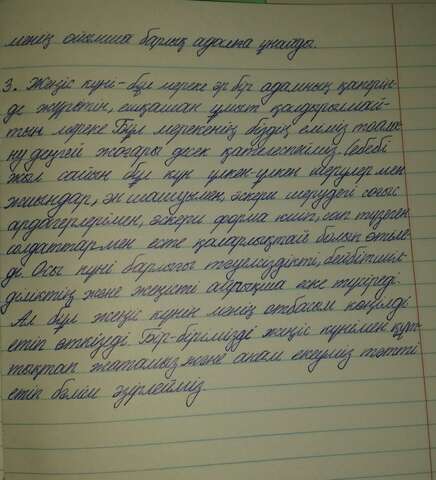 менің ойымша барлық адамға ұнайды.
3. Жеңіс күні - бұл мереке әр бір адамның қанерін-
де жүретін, ешқашан ұмыт қалдырылмай-
тын мереке Бұл мерекенің біздің еліміз тойла-
ну деңгейі жоғары десек қателеспіміз. Себебі
жыл сайын бұл күн үлкен-үлкен шерулер мен
жиындар, ән шашуымен, әскери шерудегі соғыс
ардагерлерімен, әскери форма киіп, сап түзеген
солдаттармен есте қаларлықтай болып өтіле-
ді. Осы күні барлығы тәуелсіздікті, бейбітшіл-
діліктің және жеңісті айрықша еске түсіреді.
Ал бұл жеңіс күнін менің отбасым көңілді
етіп өткізеді. Бір-бірімізді жеңіс күнімен құт-
тықтап жатамыз және анам екеуміз тәтті
етіп бәлім әзірлейміз